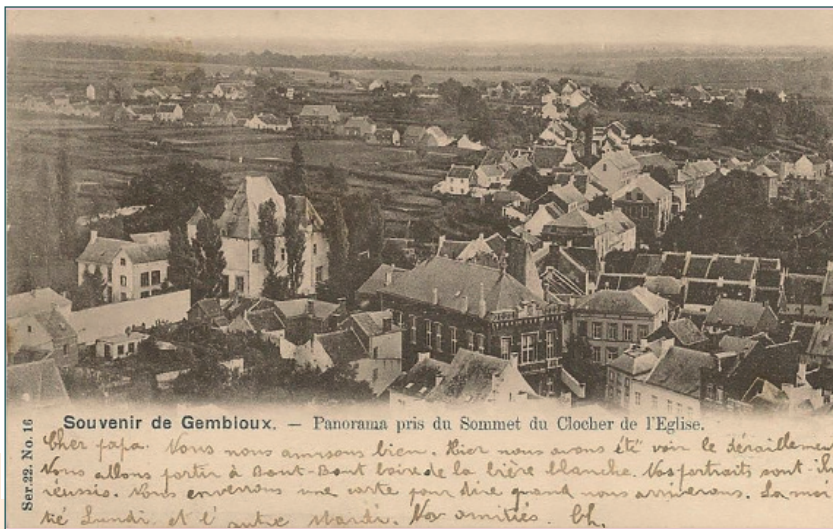 Souvenir de Gembloux. — Panorama pris du Sommet du Clocher de l'Eglise.
Ser.22. No. 16
Cher papa. Nous nous amusons bien. Hier nous avons été voir le déraillement
Nous allons partir à Bont-Bont boire de la bière blanche. Vos portraits sont-ils
réussis. Nous enverrons une carte pour dire quand nous arriverons. La moi
tié Lundi et l'autre Mardi. Nos amitiés. Ch.